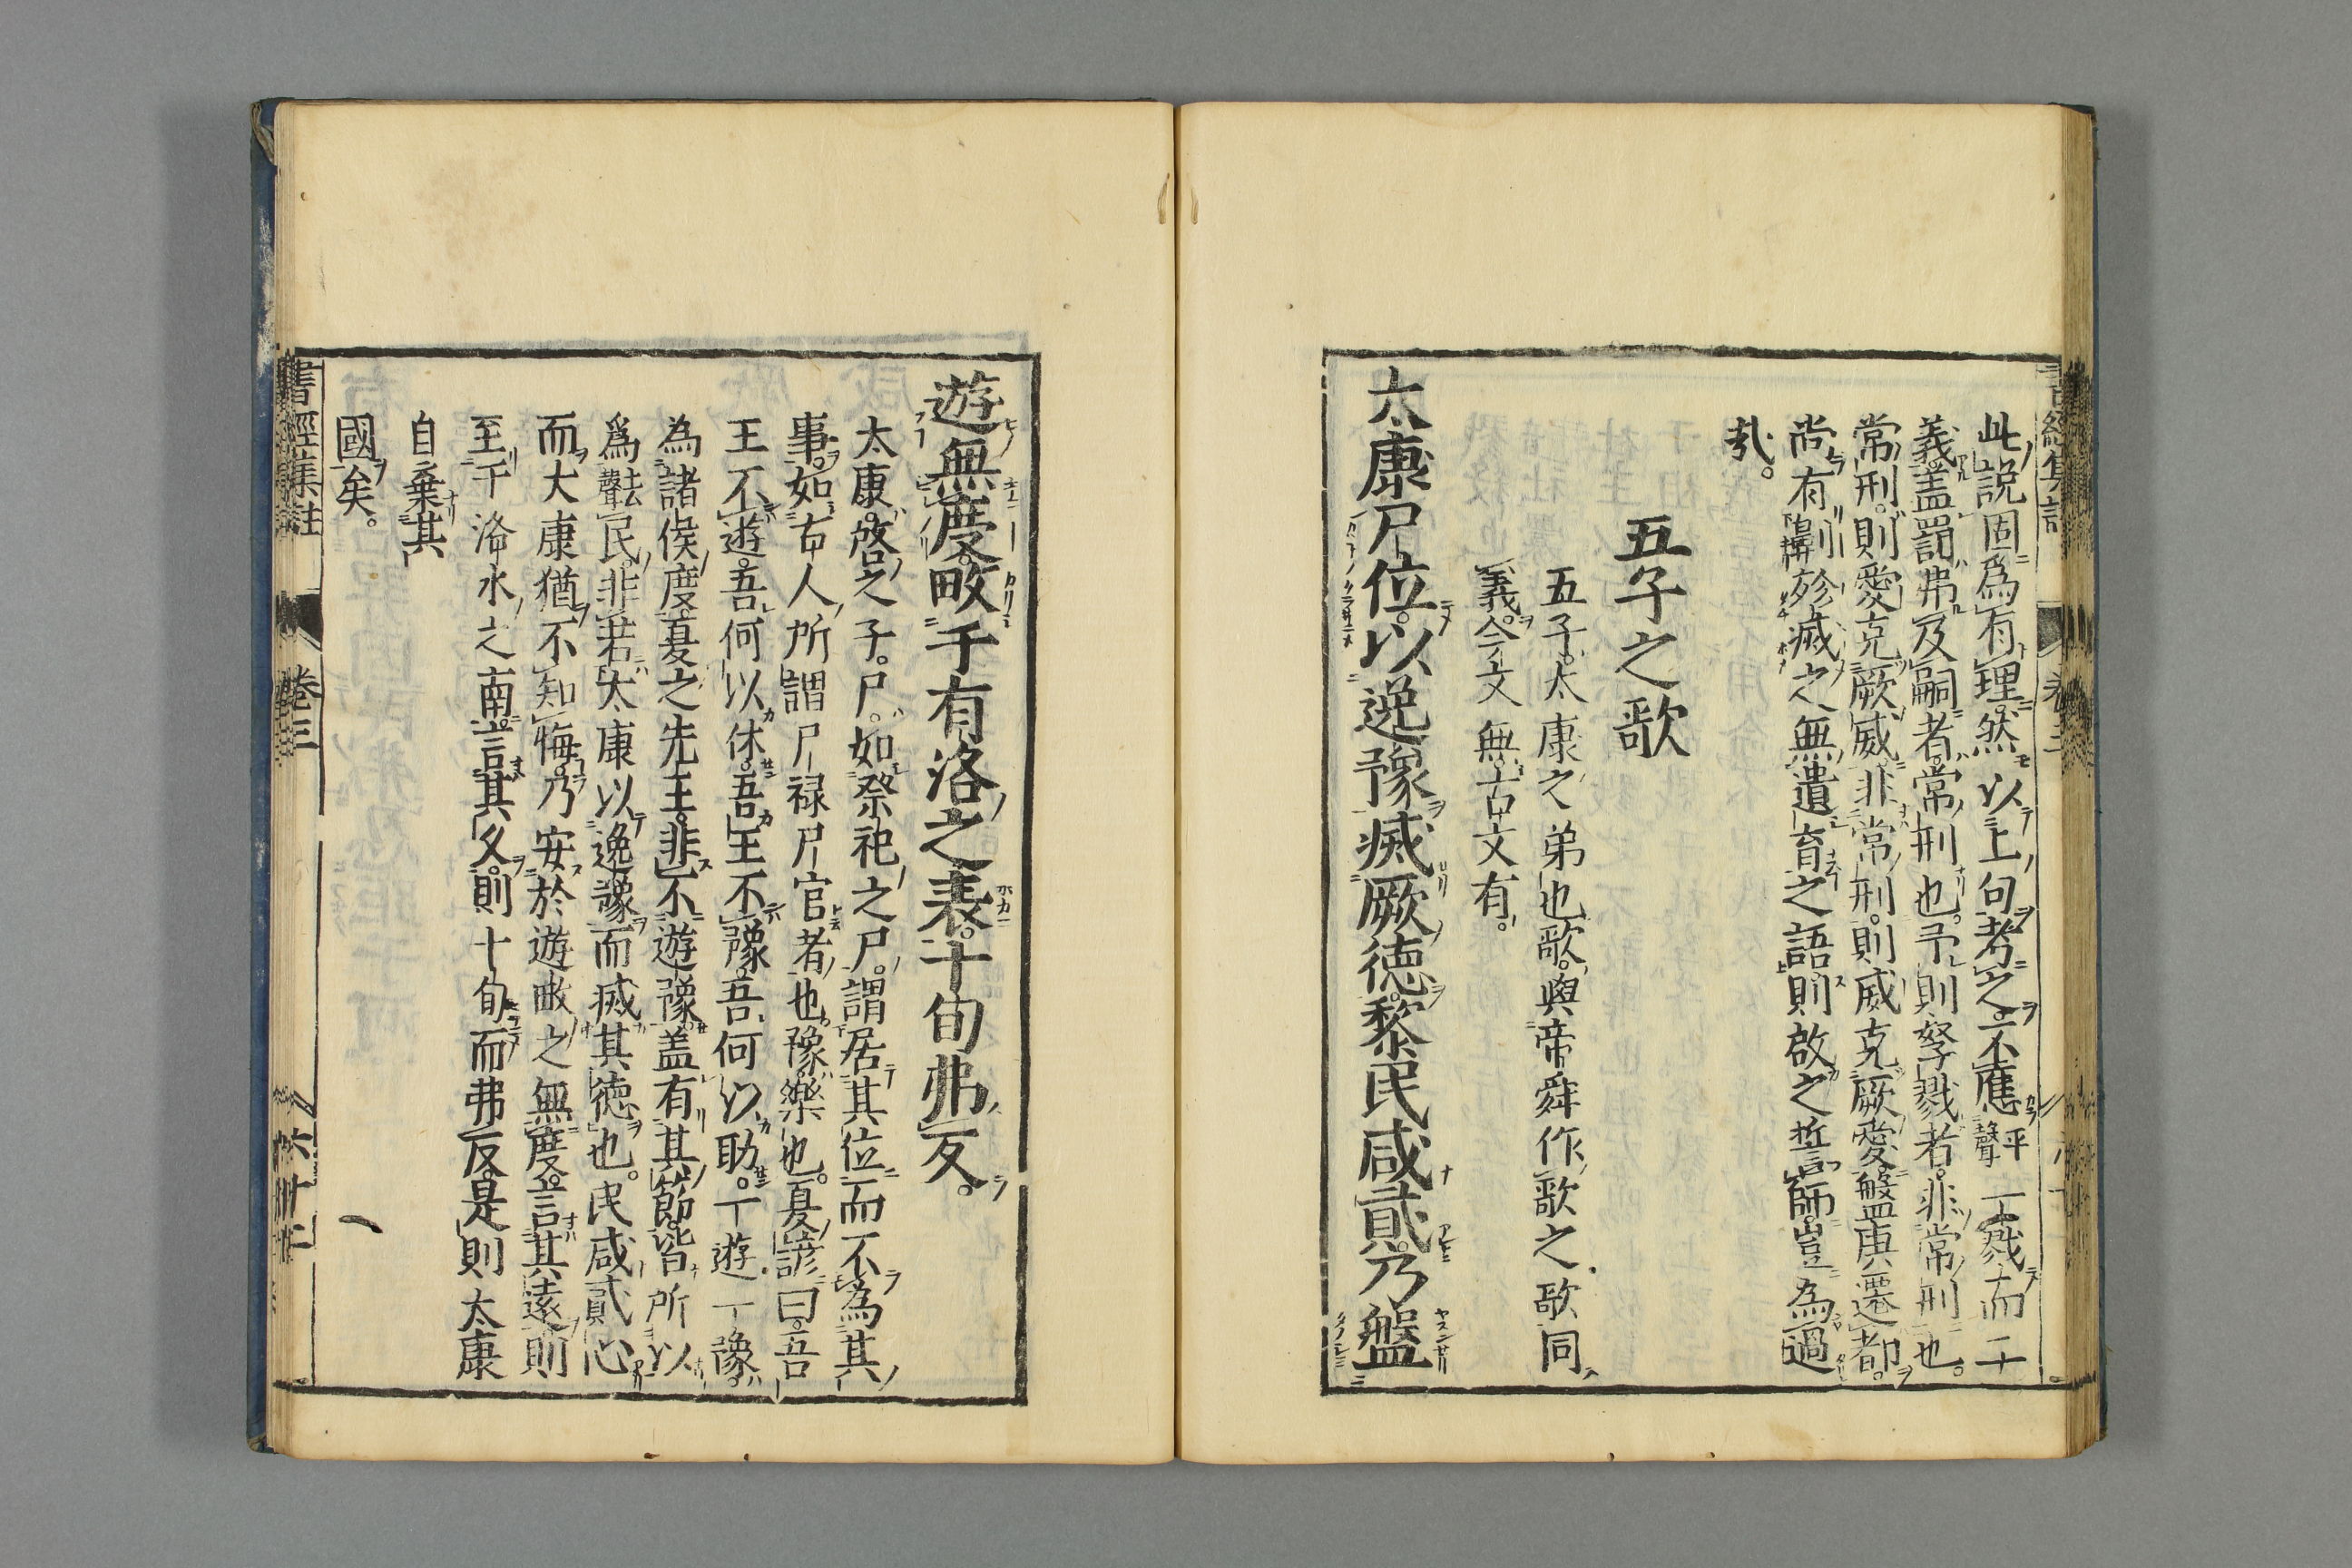 此說固爲有理然以上句考之不應平聲一戮而二
義盖罰弗及嗣者常刑也予則孥戮者非常刑也
常刑則愛克厥威非常刑則威克厥愛盤庚遷都
尚有劓殄滅之無遺育之語則啟之誓師豈為過
㢤
五子之歌
五子太康之弟也歌與帝舜作歌之歌同
義今文無古文有
太康尸位以逸豫滅厥德黎民咸貳乃盤
遊無度畋于有洛之表十旬弗反
太康啓之子尸如祭祀之尸謂居其位而不為其
事如古人所謂尸禄尸官者也豫樂也夏諺曰吾
王不遊吾何以休吾王不豫吾何以助一遊一豫
為諸侯度夏之先王非不遊豫盖有其節皆所以
爲民非若太康以逸豫而滅其德也民咸貳心
而大康猶不知悔乃安於遊畋之無度言其遠則
至于洛水之南言其久則十旬而弗反是則太康
自棄其
國矣
書經集註 卷三